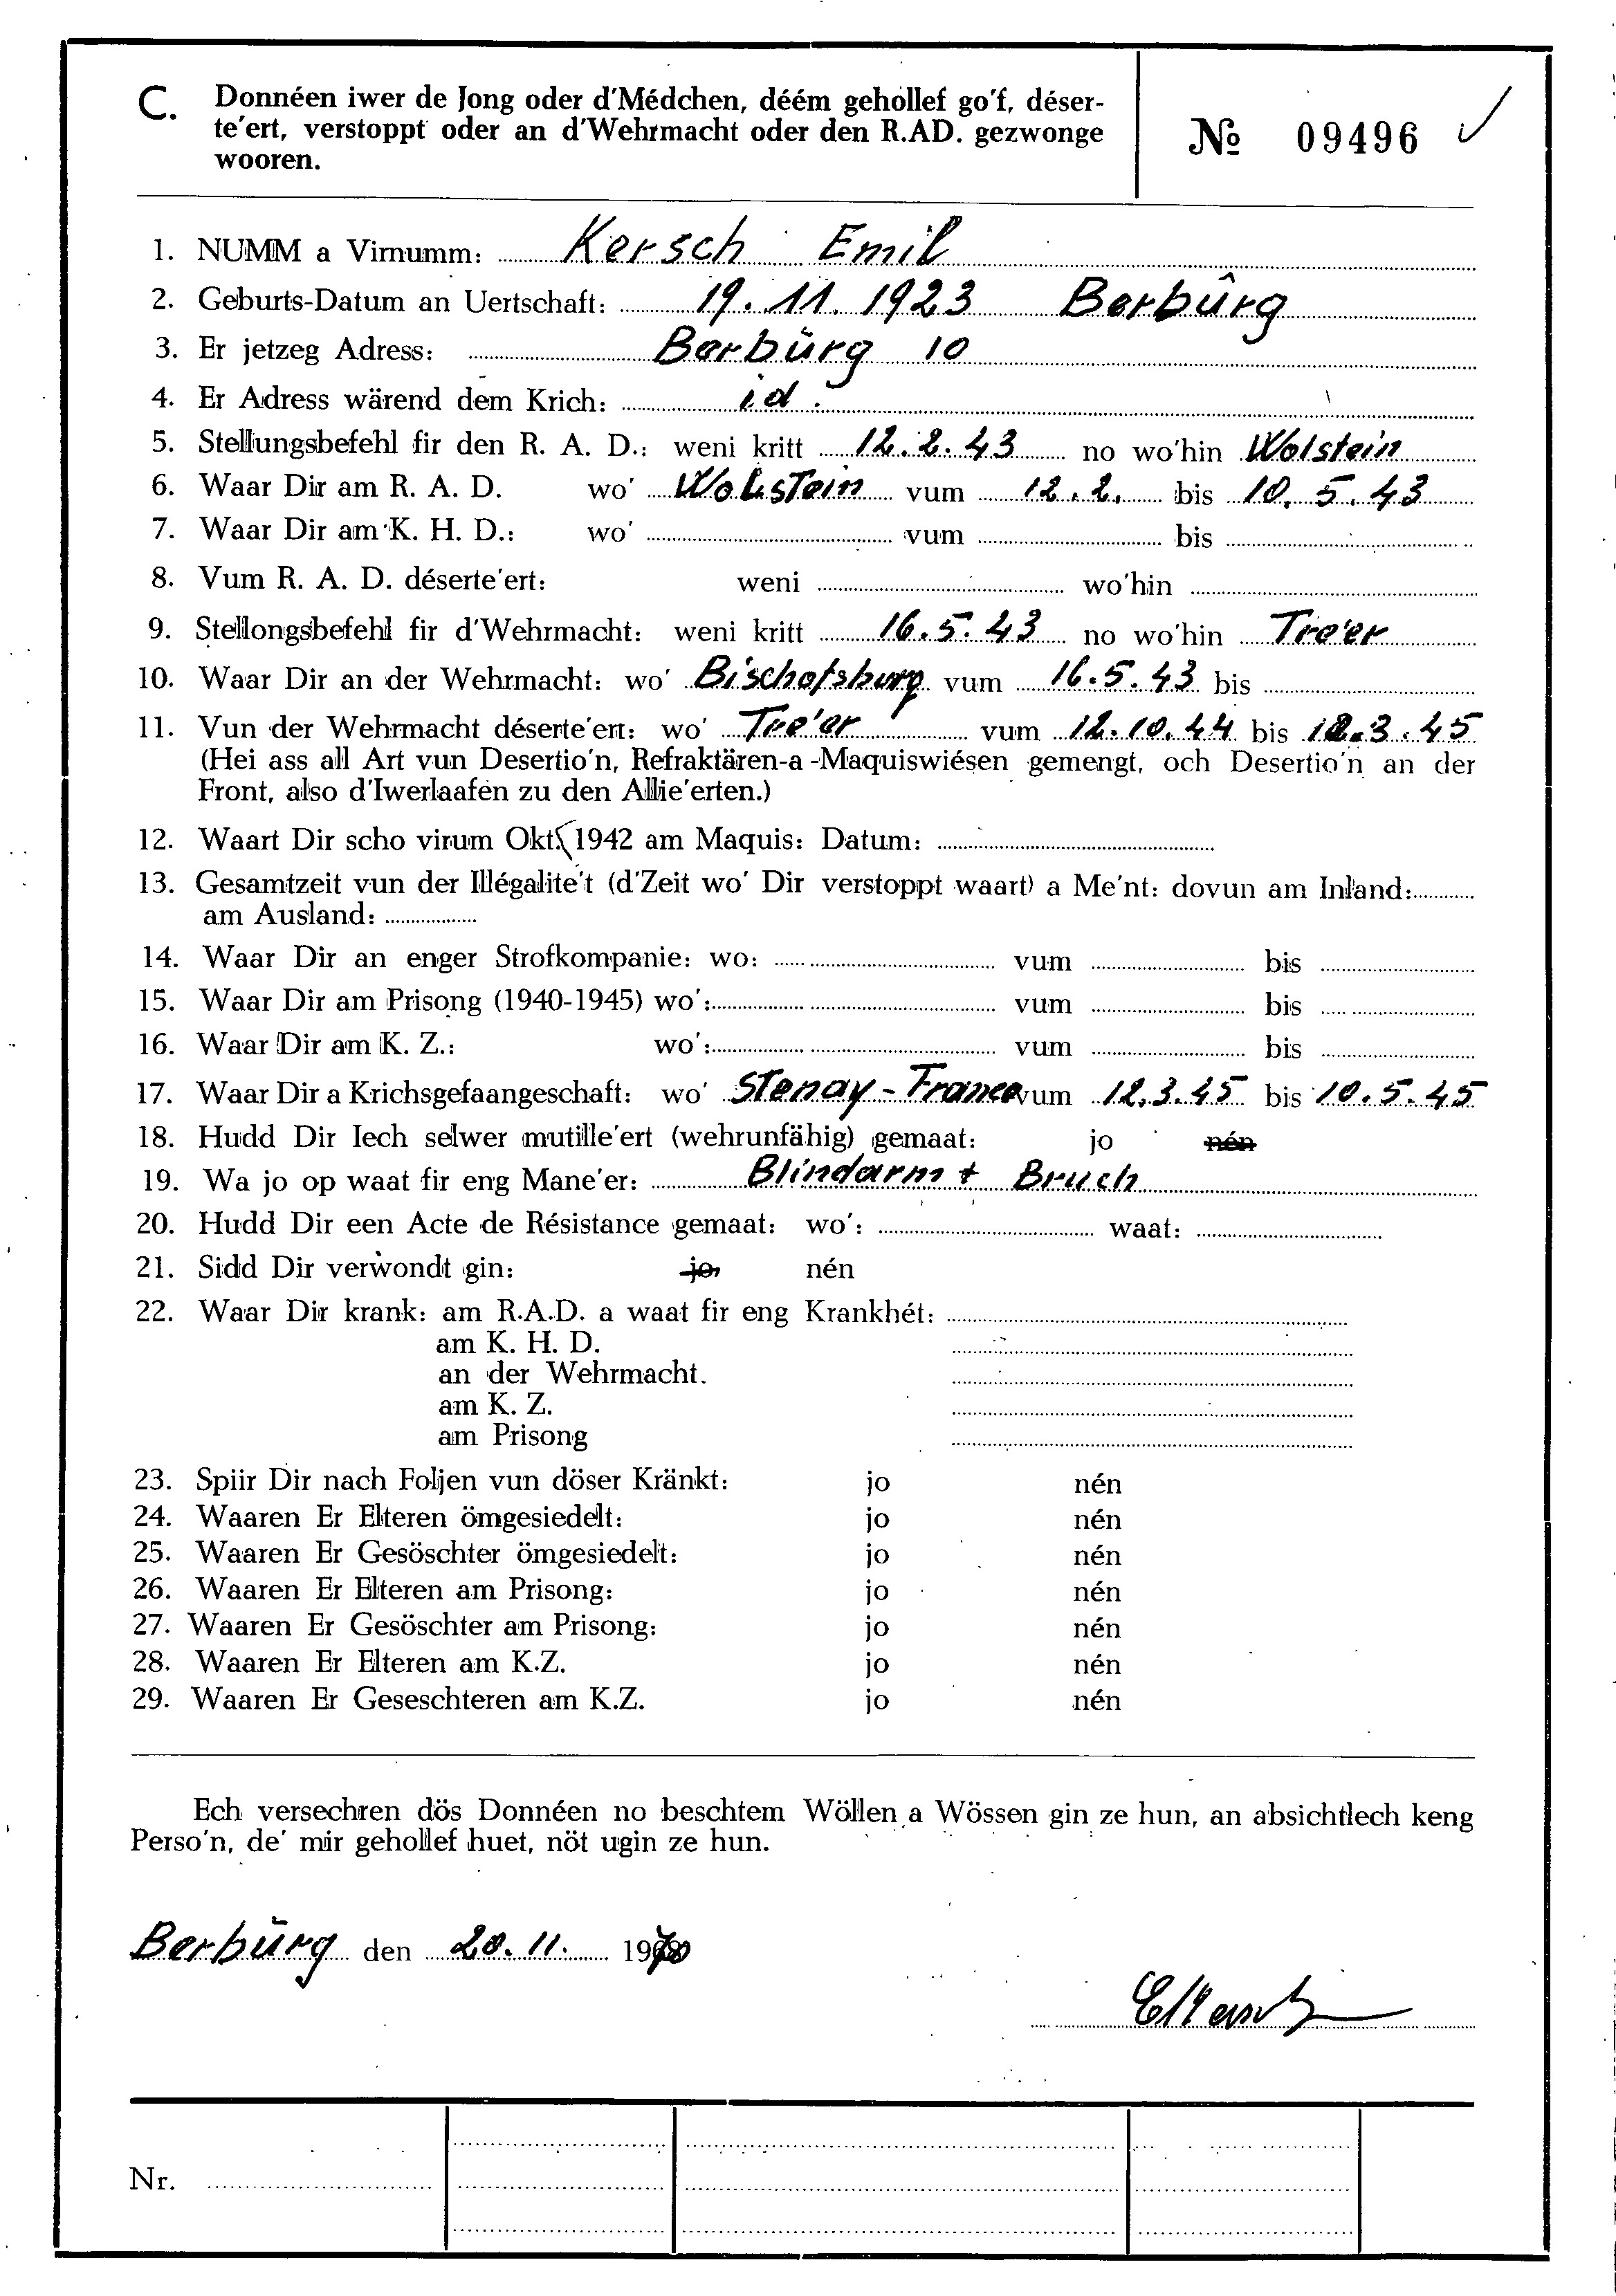 C. Donnéen iwer de Jong oder d'Médchen, déém gehollef go'f, déser-
te'ert, verstoppt oder an d'Wehrmacht oder den R.AD. gezwonge
wooren.
№ 09496
1. NUMM a Virnumm: Kersch Emil
2. Geburts-Datum an Uertschaft: 19.11.1923 Berbûrg
3. Er jetzeg Adress: Berbŭrg 10
4. Er Adress wärend dem Krich: id.
5. Stellungsbefehl fir den R. A. D.: weni kritt 12.2.43 no wo'hin Wolstein
6. Waar Dir am R. A. D. wo' Wolstein vum 12.2. bis 10.5.43
7. Waar Dir am K. H. D.: wo' vum bis
8. Vum R. A. D. déserte'ert: weni wo'hin
9. Stellongsbefehl fir d'Wehrmacht: weni kritt 16.5.43 no wo'hin Tre'er
10. Waar Dir an der Wehrmacht: wo' Bischofsburg vum 16.5.43 bis
11. Vun der Wehrmacht déserte'ert: wo' Tre'er vum 12.10.44 bis 12.3.45
(Hei ass all Art vun Desertio'n, Refraktären-a -Maquiswiésen gemengt, och Desertio'n an der
Front, also d'Iwerlaafen zu den Allie'erten.)
12. Waart Dir scho virum Okt. 1942 am Maquis: Datum:
13. Gesamtzeit vun der Illégalite't (d'Zeit wo' Dir verstoppt waart) a Me'nt: dovun am Inland:
am Ausland:
14. Waar Dir an enger Strofkompanie: wo: vum bis
15. Waar Dir am Prisong (1940-1945) wo': vum bis
16. Waar Dir am K. Z.: wo': vum bis
17. Waar Dir a Krichsgefaangeschaft: wo' Stenay-France vum 12.3.45 bis 10.5.45
18. Hudd Dir Iech selwer mutille'ert (wehrunfähig) gemaat: jo nén
19. Wa jo op waat fir eng Mane'er: Blindarm + Bruch
20. Hudd Dir een Acte de Résistance gemaat: wo': waat:
21. Sidd Dir verwondt gin: jo, nén
22. Waar Dir krank: am R.A.D. a waat fir eng Krankhét:
am K. H. D.
an der Wehrmacht.
am K. Z.
am Prisong
23. Spiir Dir nach Foljen vun döser Kränkt: jo nén
24. Waaren Er Elteren ömgesiedelt: jo nén
25. Waaren Er Gesöschter ömgesiedelt: jo nén
26. Waaren Er Elteren am Prisong: jo nén
27. Waaren Er Gesöschter am Prisong: jo nén
28. Waaren Er Elteren am K.Z. jo nén
29. Waaren Er Geseschteren am K.Z. jo nén
Ech versechren dös Donnéen no beschtem Wöllen a Wössen gin ze hun, an absichtlech keng
Perso'n, de' mir gehollef huet, nöt ugin ze hun.
Berbŭrg den 20.11. 1970
EKersch
Nr.